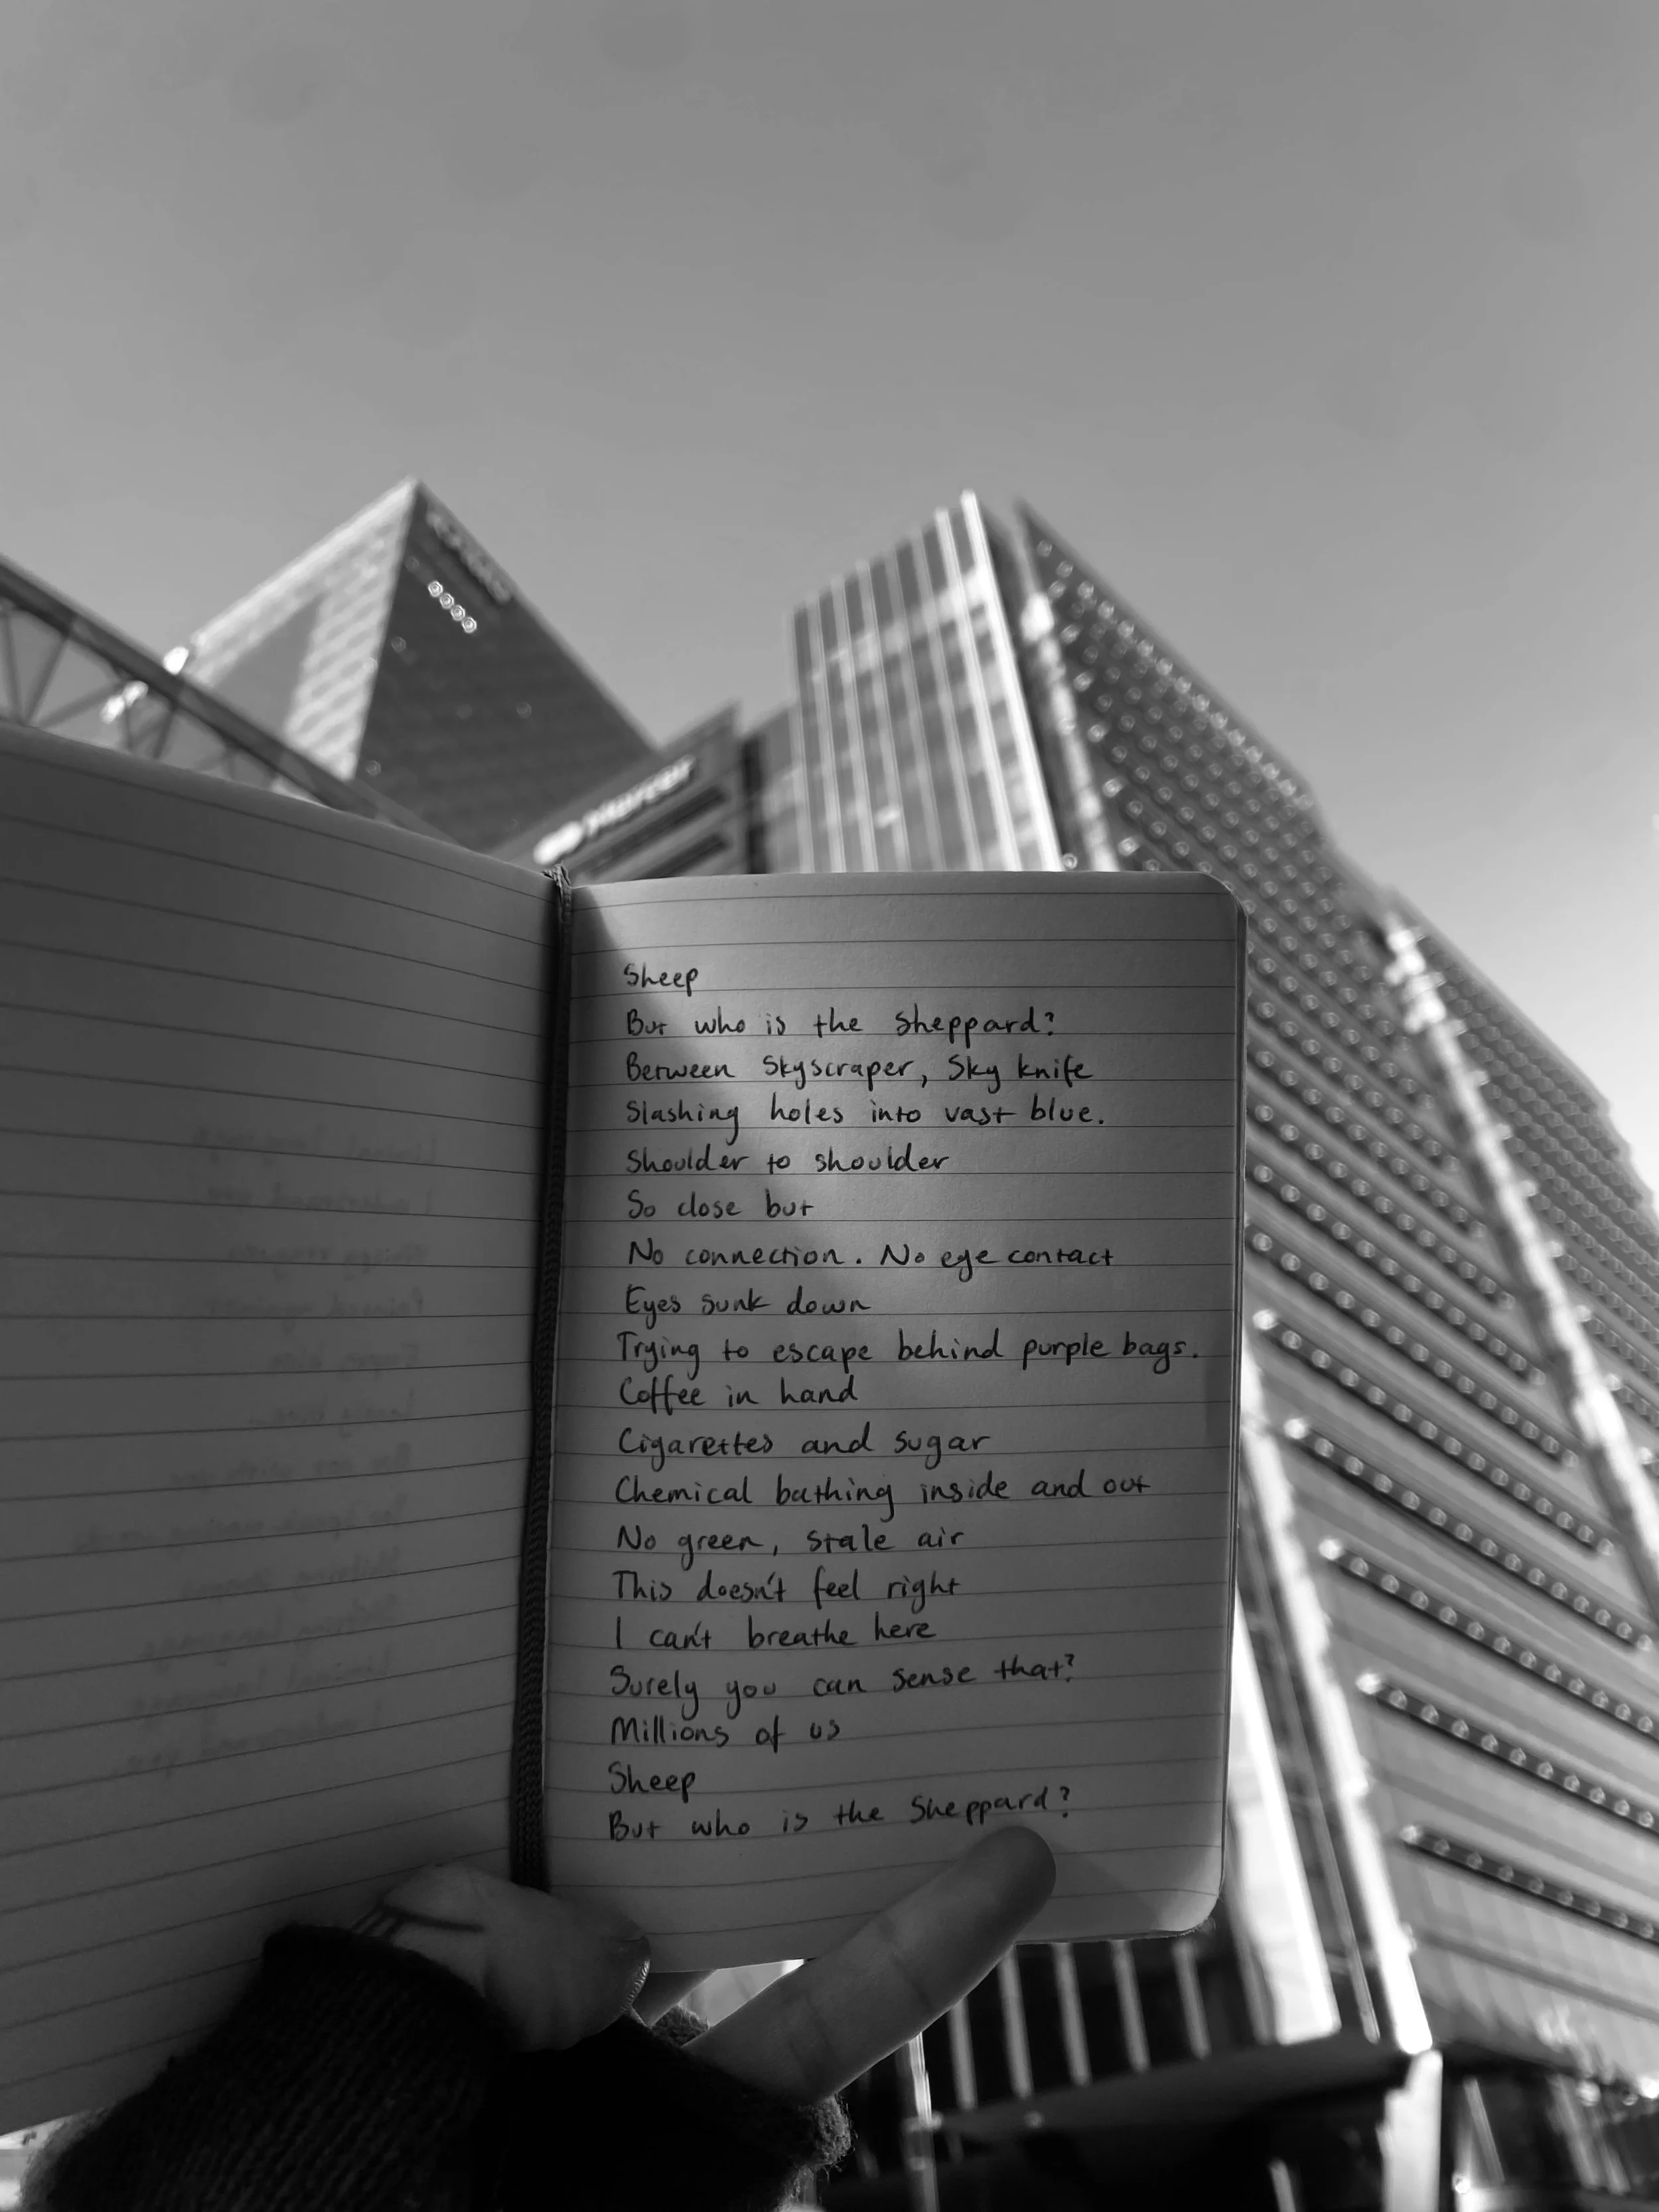 Sheep
But who is the Sheppard?
Between Skyscraper, Sky knife
Slashing holes into vast blue.
Shoulder to shoulder
So close but
No connection. No eye contact
Eyes sunk down
Trying to escape behind purple bags.
Coffee in hand
Cigarettes and sugar
Chemical bathing inside and out
No green, stale air
This doesn't feel right
I can't breathe here
Surely you can sense that?
Millions of us
Sheep
But who is the Sheppard?